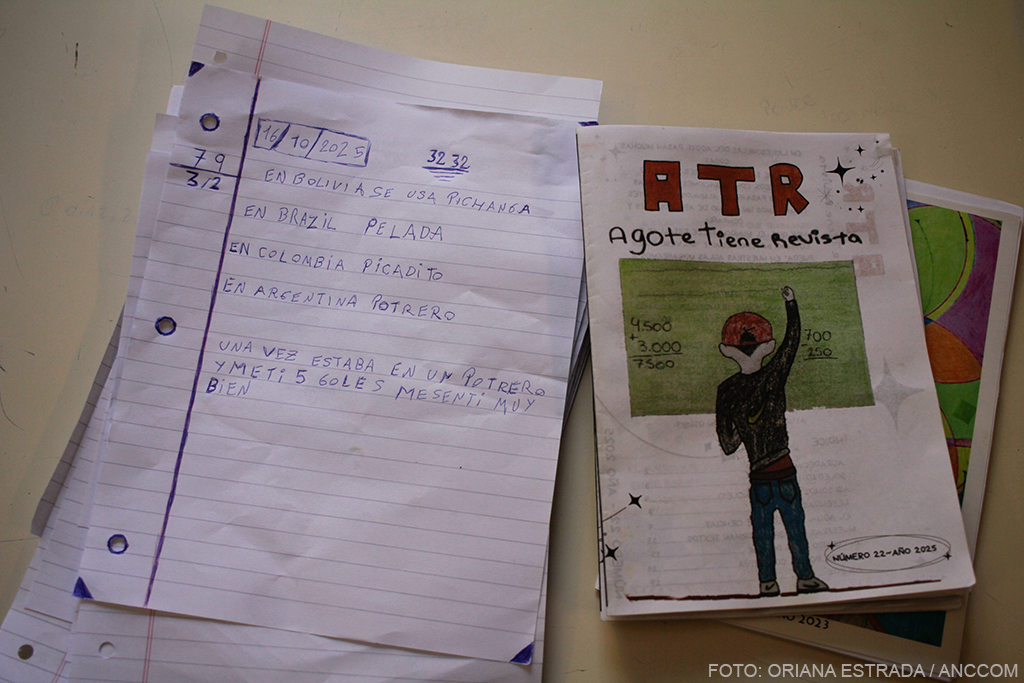 16/10/2025
32 32
79
312
EN BOLIVIA SE USA PICHANGA
EN BRAZIL PELADA
EN COLOMBIA PICADITO
EN ARGENTINA POTRERO
UNA VEZ ESTABA EN UN POTRERO
Y METI 5 GOLES ME SENTI MUY
BIEN
ATR
Agote Tiene Revista
4.500
+ 3.000
7.500
700
- 250
NÚMERO 22-AÑO 2025
2023
FOTO: ORIANA ESTRADA / ANCCOM